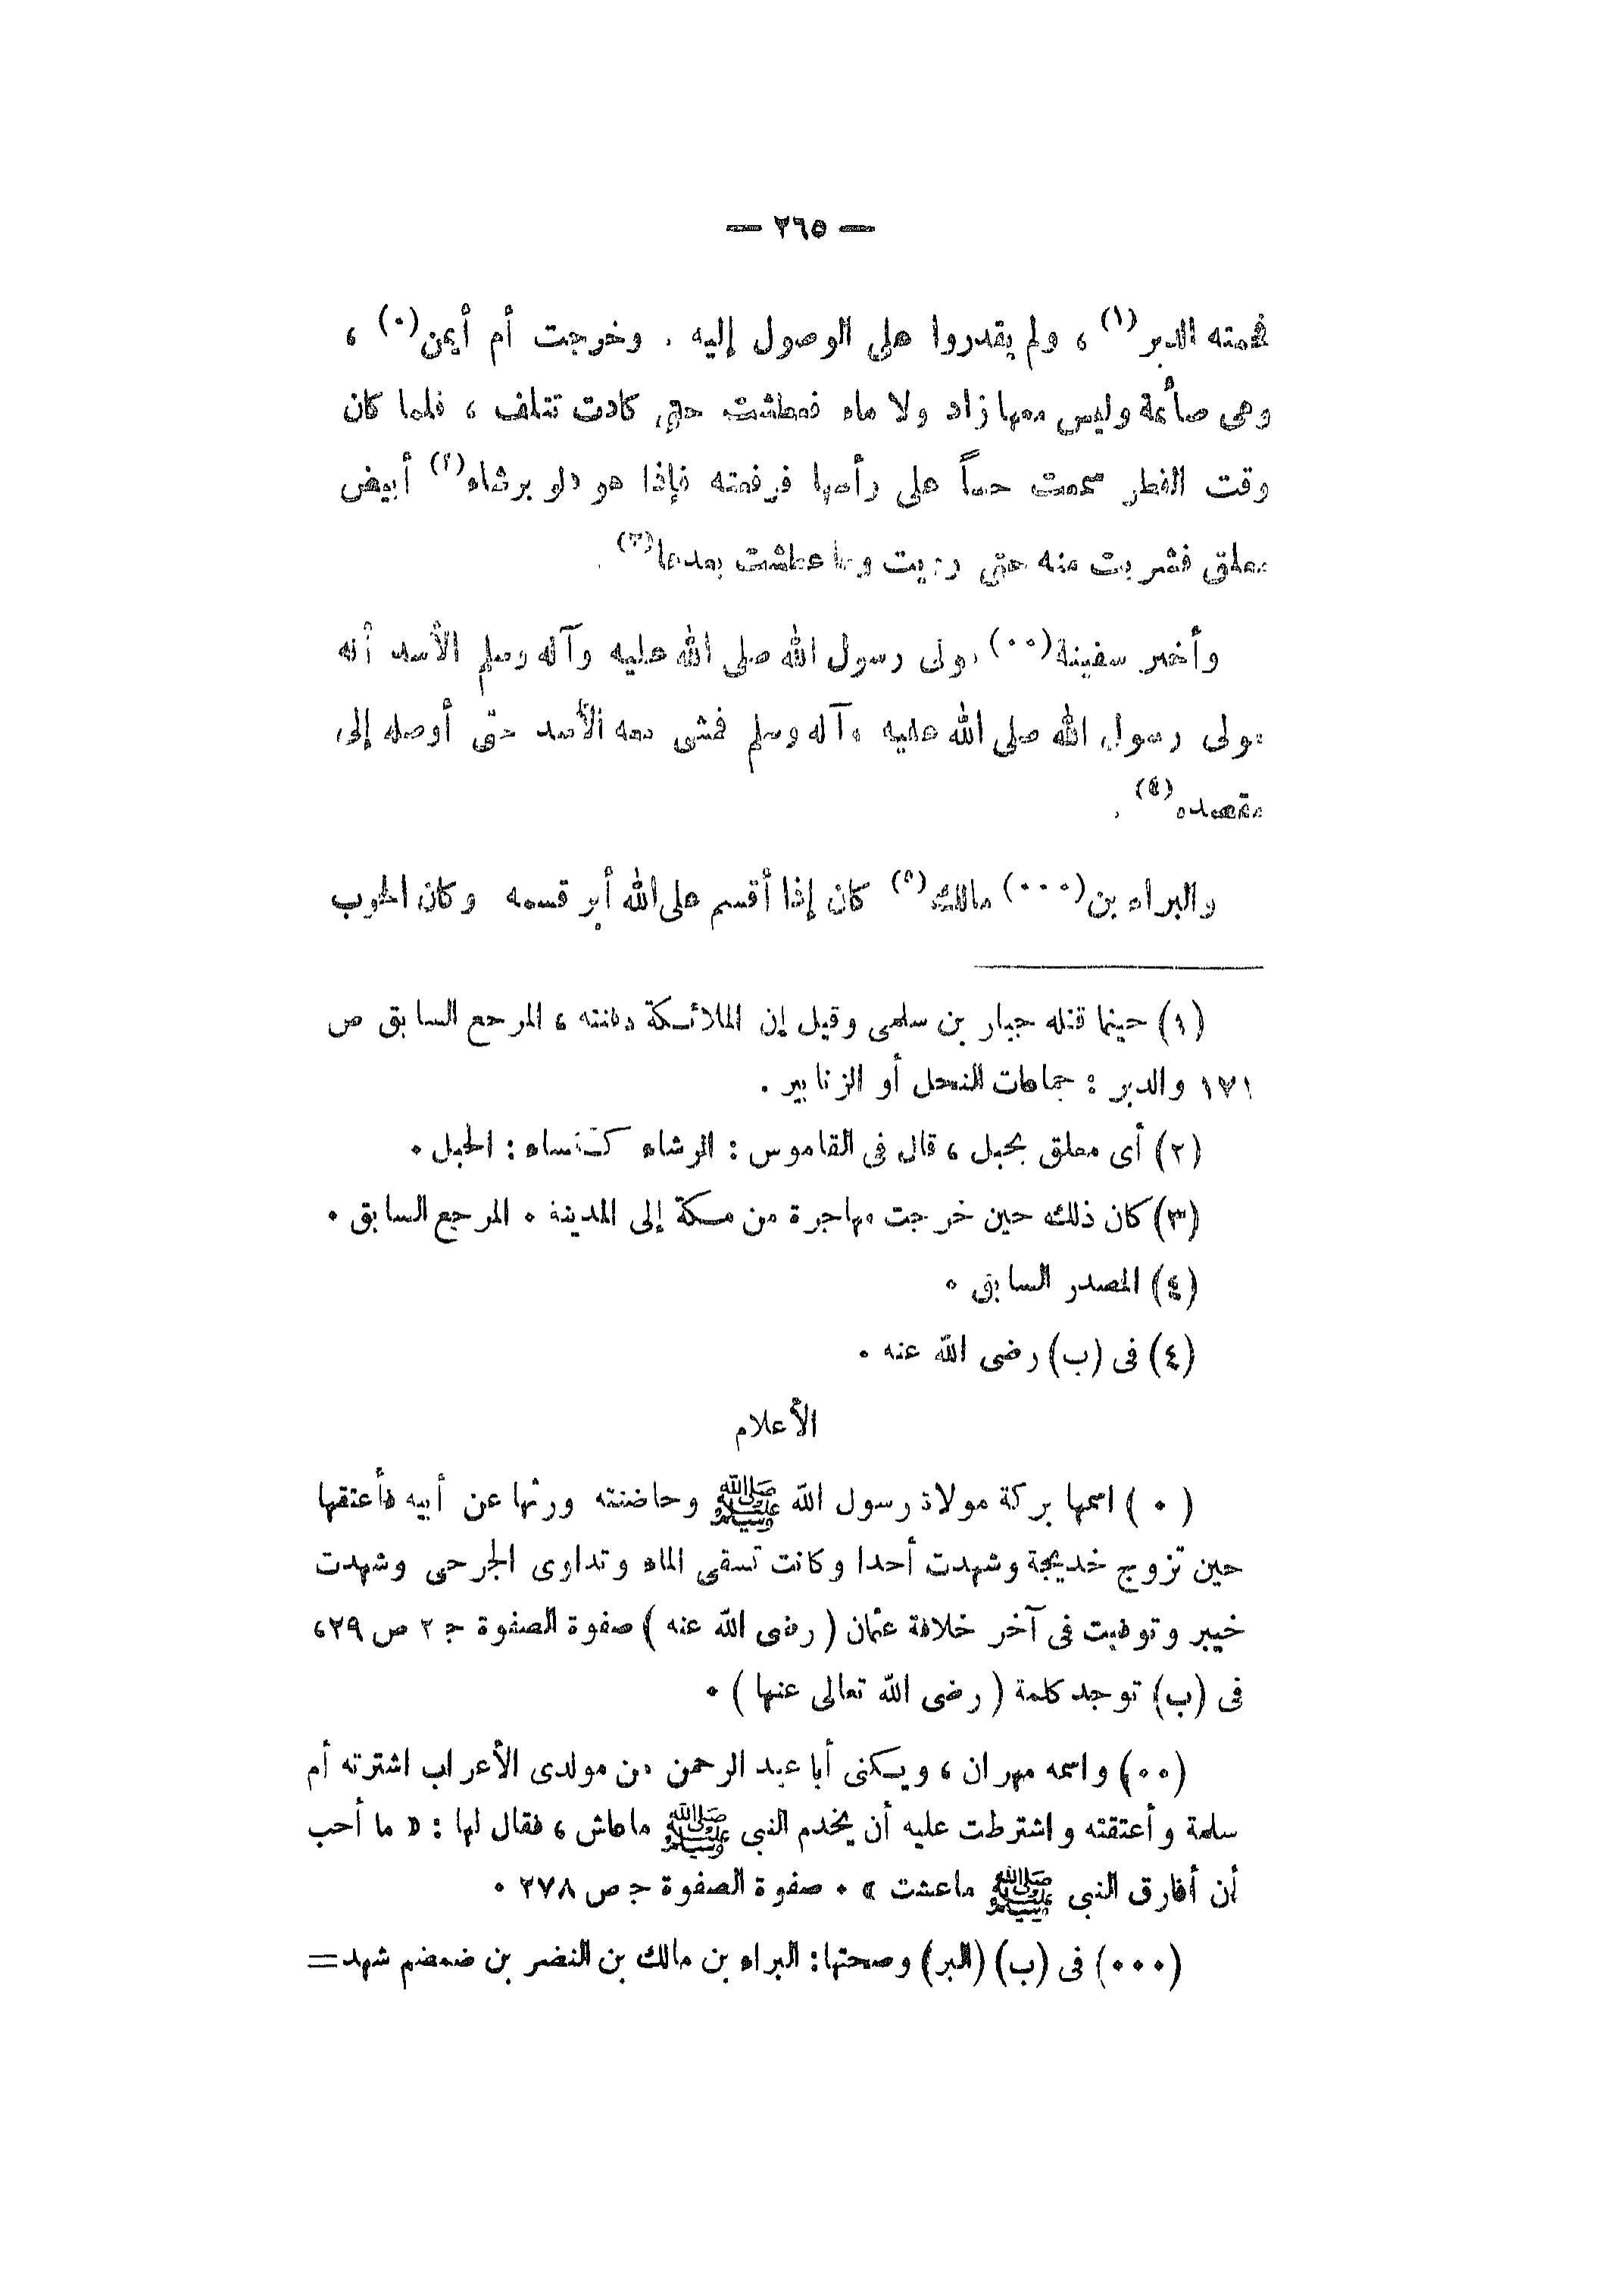 — ٢٦٥ —
فحمته الدبر(١) ، ولم يقدروا على الوصول إليه . وخرجت أم أيمن(٠) ،
وهى صائمة وليس معها زاد ولا ماء فعطشت حتى كادت تتلف ، فلما كان
وقت الفطر سمعت حساً على رأسها فرفعته فإذا هو دلو برشاء(٢) أبيض
معلق فشربت منه حتى رويت وما عطشت بعدها(٣) .
وأخبر سفينة(٠٠) مولى رسول الله صلى الله عليه وآله وسلم الأسد أنه
مولى رسول الله صلى الله عليه وآله وسلم فمشى معه الأسد حتّى أوصله إلى
مقصده(٤) .
والبراء بن(٠٠٠) مالك(٥) كان إذا أقسم على الله أبر قسمه وكان الحرب
(١) حينما قتله جبار بن سلمى وقيل إن الملائكة دفنته ، المرجع السابق ص
١٧١ والدبر : جماعات النحل أو الزنابير .
(٢) أى معلق بحبل ، قال فى القاموس : الرشاء ككساء : الحبل .
(٣) كان ذلك حين خرجت مهاجرة من مكة إلى المدينة . المرجع السابق .
(٤) المصدر السابق .
(٤) فى (ب) رضى الله عنه .
الأعلام
( ٠ ) اسمها بركة مولاة رسول الله ﷺ وحاضنته ورثها عن أبيه فأعتقها
حين تزوج خديجة وشهدت أحدا وكانت تسقى الماء وتداوى الجرحى وشهدت
خيبر وتوفيت فى آخر خلافة عثمان ( رضى الله عنه ) صفوة الصفوة ج ٢ ص ٢٩،
فى (ب) توجد كلمة ( رضى الله تعالى عنها ) .
(٠٠) واسمه مهران ، ويكنى أبا عبد الرحمن من مولدى الأعراب اشترته أم
سلمة وأعتقته واشترطت عليه أن يخدم النبى ﷺ ماعاش ، فقال لها : « ما أحب
أن أفارق النبى ﷺ ماعشت » . صفوة الصفوة ج ص ٢٧٨ .
(٠٠٠) فى (ب) (البر) وصحتها: البراء بن مالك بن النضر بن ضمضم شهد=